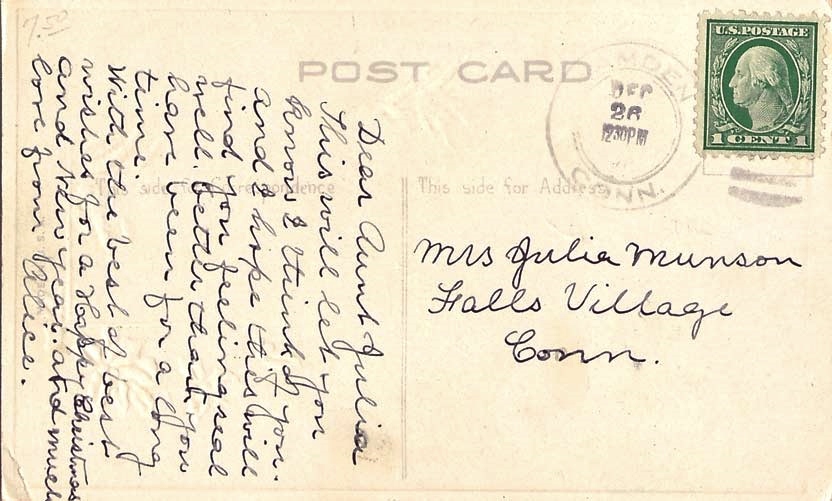 7.50
POST CARD
U.S. POSTAGE
1 CENT 1
DEC
26
12 30 PM
CONN.
This side for Correspondence
This side for Address
Dear Aunt Julia
This will let you
know I think of you.
and I hope this will
find you feeling real
well. better than you
have been for a long
time.
With the best of best
wishes for a Happy Christmas
and New Year. and much
love from Alice.
Mrs Julia Munson
Falls Village
Conn.